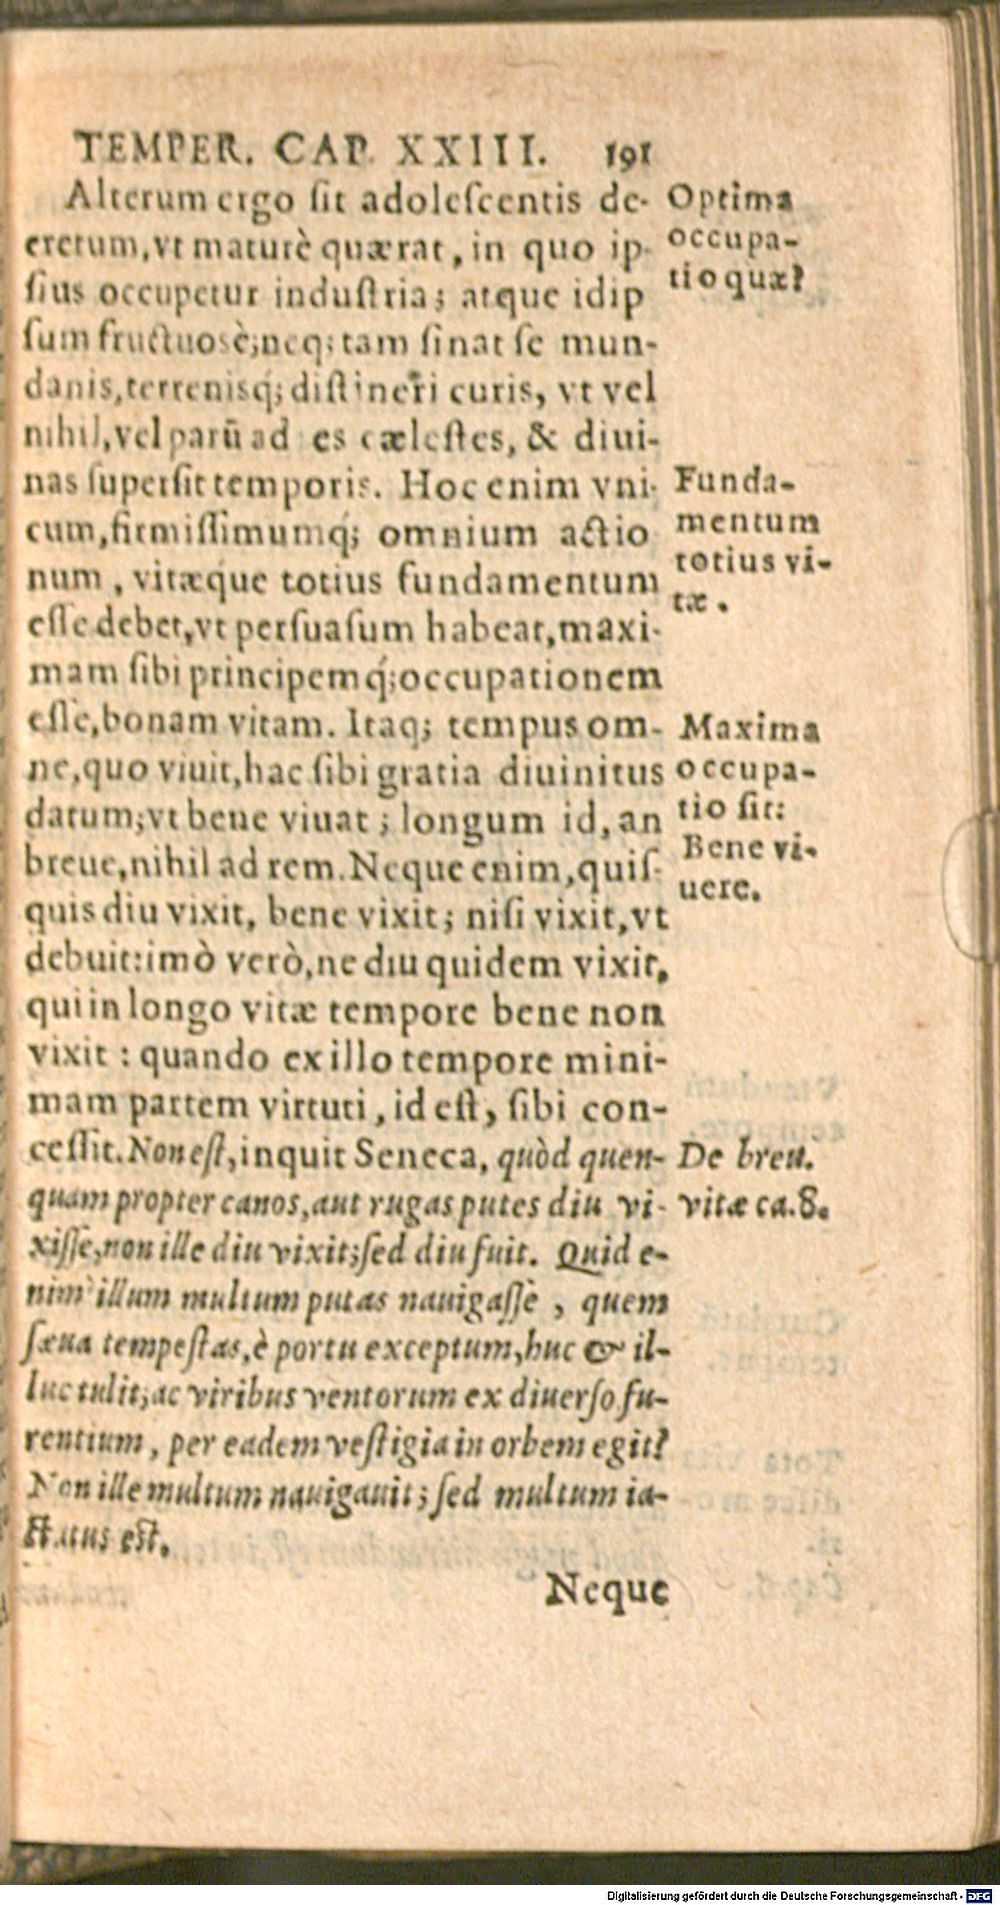 TEMPER. CAP. XXIII. 191
Alterum ergo sit adolescentis de-
cretum, vt maturè quærat, in quo ip-
sius occupetur industria; atque id ip
sum fructuosè; neq; tam sinat se mun-
danis, terrenisq́; distineri curis, vt vel
nihil, vel parũ ad es cælestes, & diui-
nas supersit temporis. Hoc enim vni-
cum, firmissimumq́; omnium actio
num, vitæque totius fundamentum
esse debet, vt persuasum habeat, maxi-
mam sibi principemq́; occupationem
esse, bonam vitam. Itaq; tempus om-
ne, quo viuit, hac sibi gratia diuinitus
datum; vt bene viuat; longum id, an
breue, nihil ad rem. Neque enim, quis-
quis diu vixit, bene vixit; nisi vixit, vt
debuit: imò verò, ne diu quidem vixit,
qui in longo vitæ tempore bene non
vixit: quando ex illo tempore mini-
mam partem virtuti, id est, sibi con-
cessit. Non est, inquit Seneca, quòd quen-
quam propter canos, aut rugas putes diu vi-
xisse, non ille diu vixit; sed diu fuit. Quid e-
nim illum multum putas nauigasse, quem
sæua tempestas, è portu exceptum, huc & il-
luc tulit; ac viribus ventorum ex diuerso fu-
rentium, per eadem vestigia in orbem egit?
Non ille multum nauigauit; sed multum ia-
ctatus est.
Neque
Optima
occupa-
tio quæ?
Funda-
mentum
totius vi-
tæ.
Maxima
occupa-
tio sit:
Bene vi-
uere.
De breu.
vitæ ca. 8.
Digitalisierung gefördert durch die Deutsche Forschungsgemeinschaft - DFG